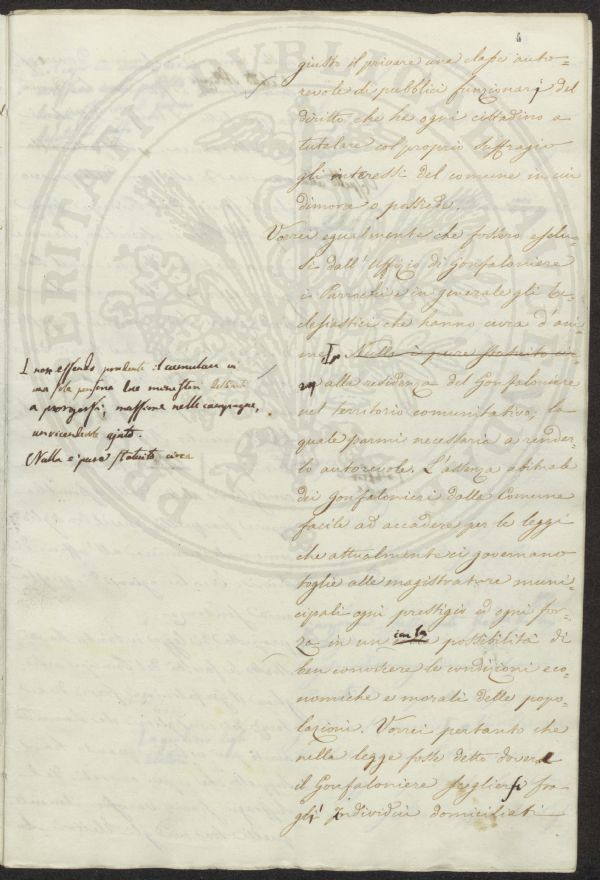 6
giusto il privare una classe auto-
revole di pubblici funzionarj del
diritto che ha ogni cittadino a
tutelare col proprio suffragio
gli interessi del comune in cui
dimora o possiede.
Vorrei egualmente che fossero esclu-
si dall'Uffizio di Gonfaloniere
i Parrochi e in generale gli Ec-
clesiastici che hanno cura d'ani-
me. Nulla è pure statuito cir-
alla residenza del Gonfaloniere
nel territorio comunitativo, la
quale parmi necessaria a render-
lo autorevole. L'assenza abituale
dei Gonfalonieri dalle Comune
facile ad accadere per le leggi
che attualmente ci governano
toglie alle magistrature muni-
cipali ogni prestigio ed ogni for-
za in un colla possibilità di
ben conoscere le condizioni eco-
nomiche e morali delle popo-
lazioni. Vorrei pertanto che
nella legge fosse detto dovere
il Gonfaloniere scegliersi fra
gl'individui domiciliati
non essendo prudente il cumulare in
una sola persona due ministeri destinati
a porgersi, massime nelle campagne,
un vicendevole ajuto.
Nulla è pure statuito circa